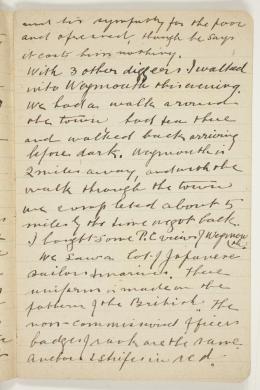 and his sympathy for the poor
and oppressed, though he says
it costs him nothing.
With 3 other diggers I walked
into Weymouth this evening.
We had a walk around
the town had tea there
and walked back arriving
before dark. Weymouth is
2 miles away, and with the
walk through the town
we completed about 5
miles by the time we got back
I bought some P.C views of Weymouth
We saw a lot of Japanese
sailors & marines. Their
uniform is made on the
pattern of the British. The
non-commissioned officers
badges of rank are the same.
Anchor & stripes in red.